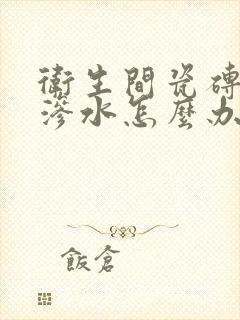 衛生間瓷磚
滲水怎麼办
飯倉